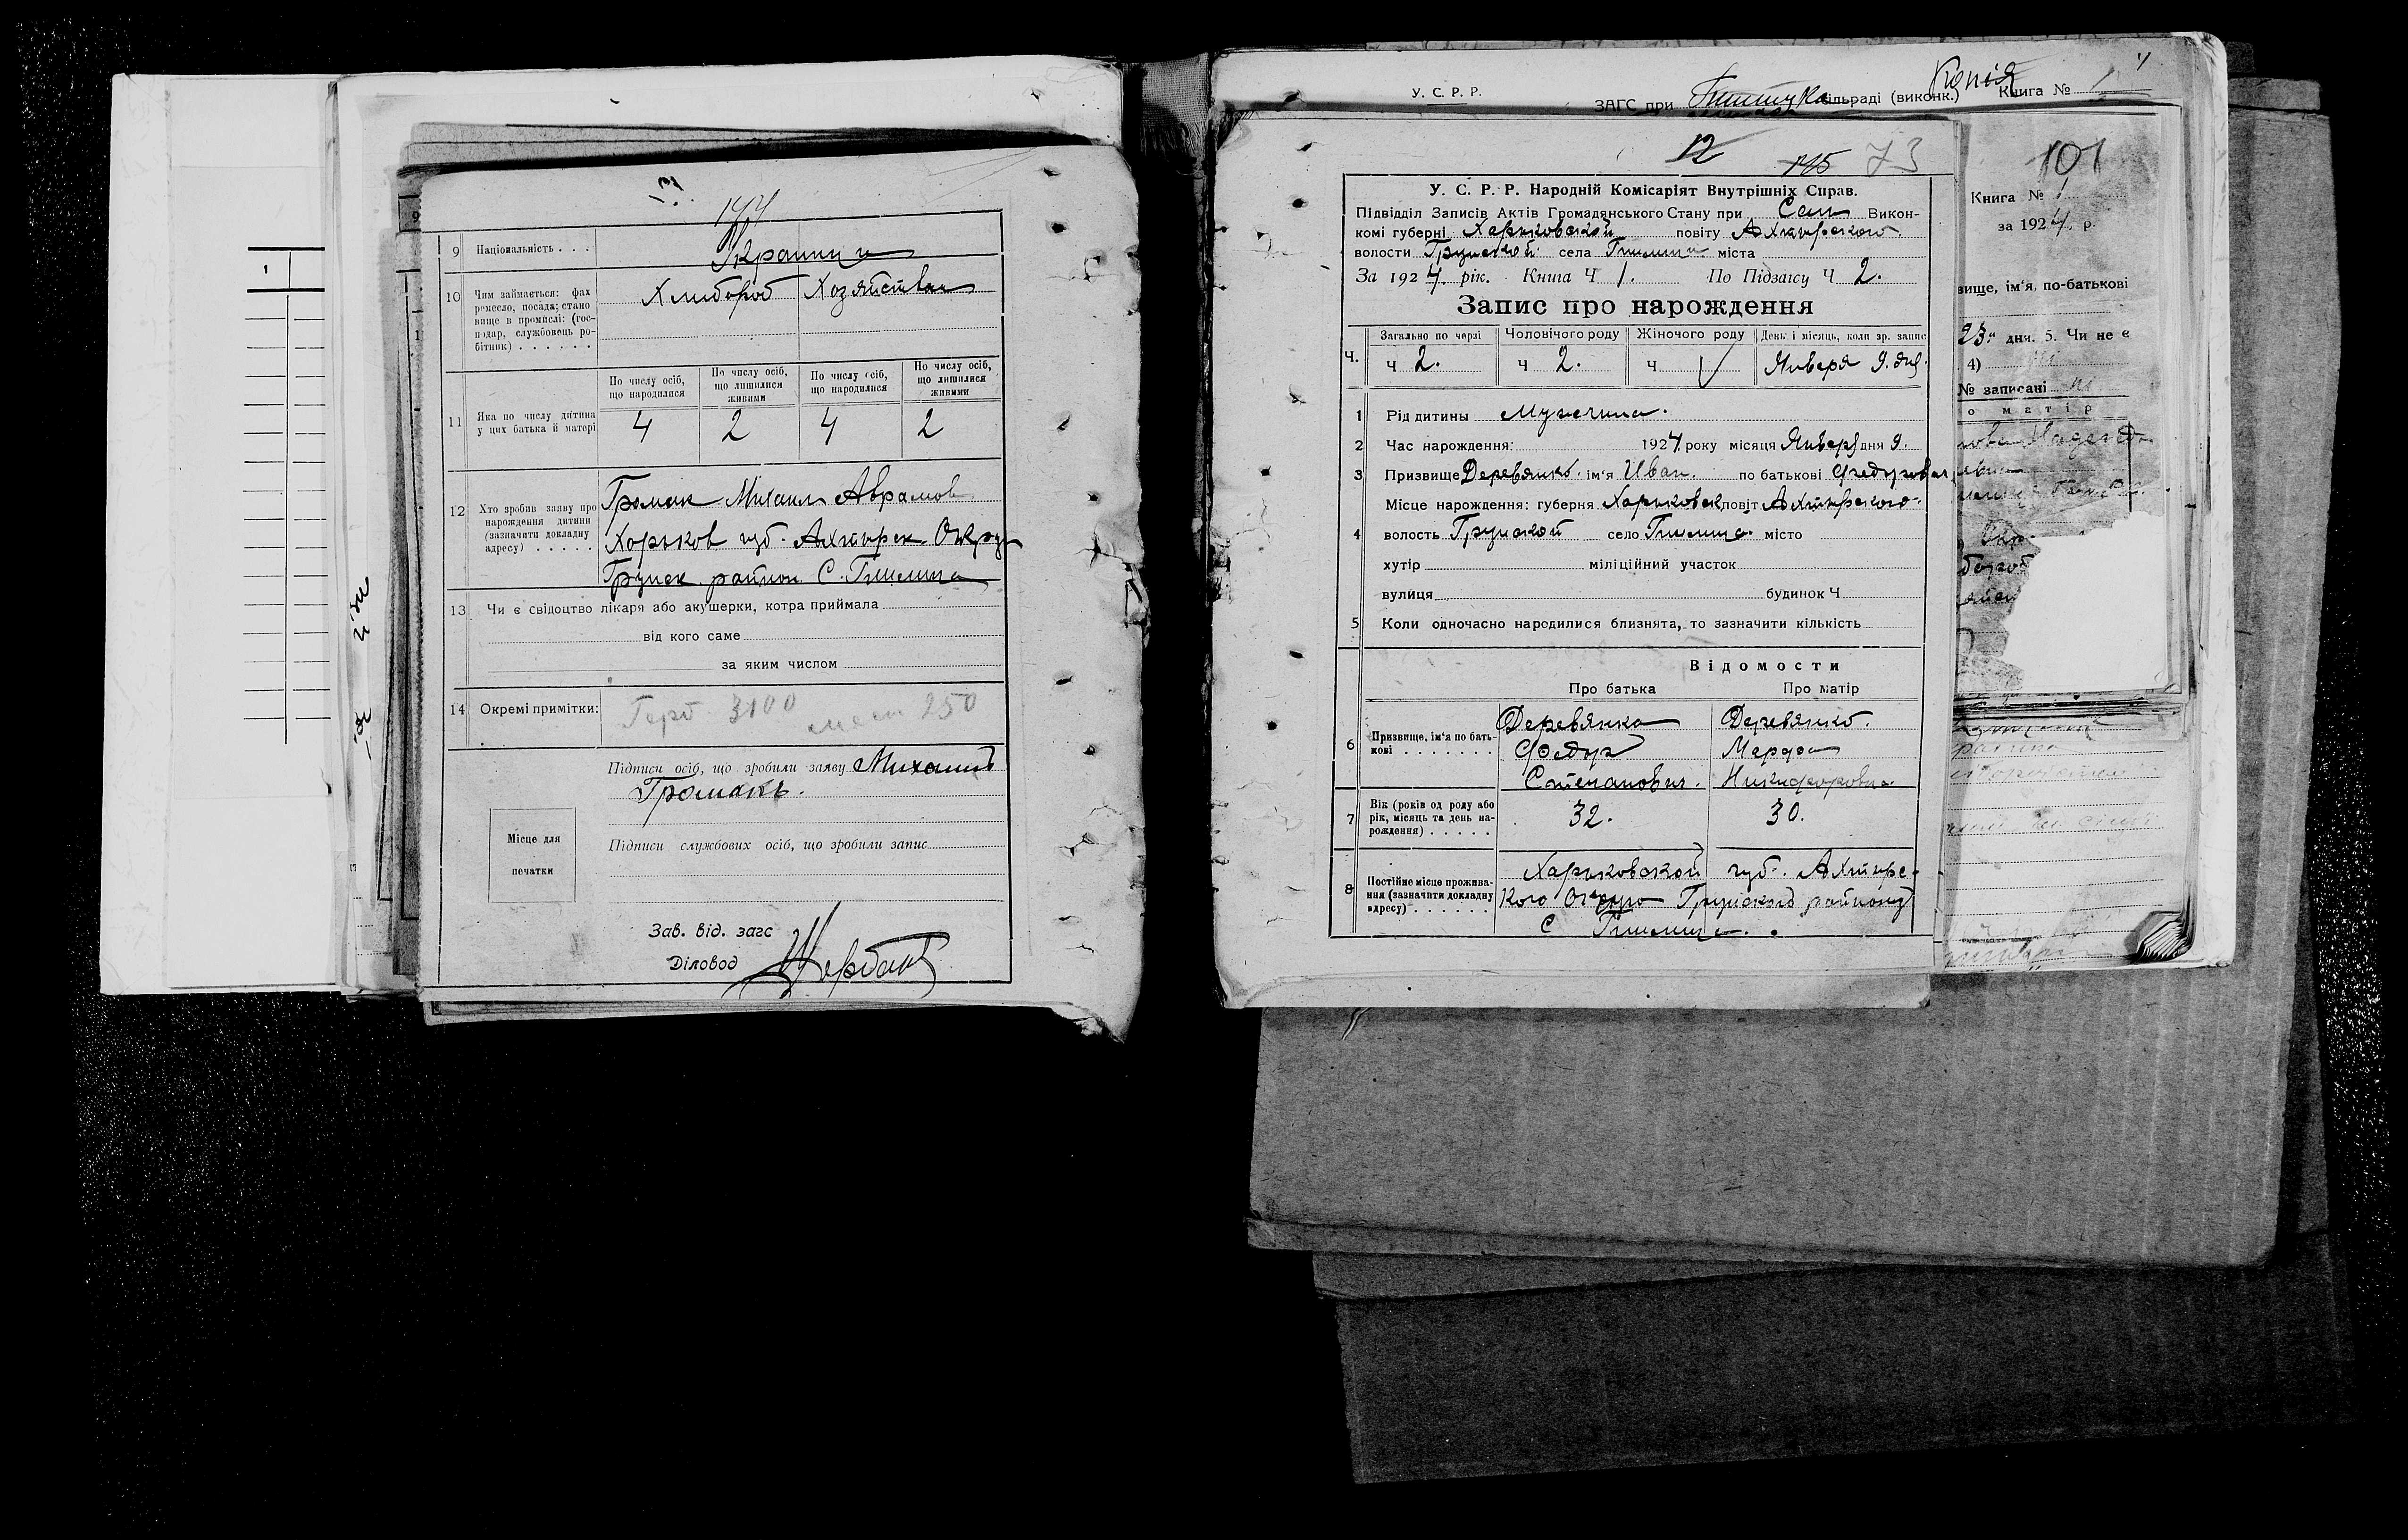 144
9 Національність . . . Украинци
10 Чим займається: фах ремесло, посада; становище в промислі: (господар, службовець робітник) . . . . . . Хлибороб Хозяйствам
По числу осіб, що народилися По числу осіб, що лишилися живими По числу осіб, що народилися По числу осіб, що лишилися живими
11 Яка по числу дитина у цих батька й матері 4 2 4 2
12 Хто зробив заяву про нарождення дитини (зазначити докладну адресу) . . . . .
Громак Михаил Аврамов
Харьков губ. Ахтирск. Округ
Грунск. район С.
13 Чи є свідоцтво лікаря або акушерки, котра приймала
від кого саме
за яким числом
14 Окремі примітки: Герб. 3100 мест 250
Підписи осіб, що зробили заяву Михаил
Громакъ.
Місце для печатки
Підписи службових осіб, що зробили запис
Зав. від. загс
Діловод Щербак
У. С. Р. Р.
ЗАГС при сільраді (виконк.) Копія Книга № 1
12 145 73
У. С. Р. Р. Народній Комісаріят Внутрішніх Справ.
Підвідділ Записів Актів Громадянського Стану при Сель Викон-
комі губерні Харьковской повіту Ахтирского
волости Грунской села міста
За 1924 рік. Книга Ч 1. По Підзагсу Ч 2.
Запис про нарождення
Ч. Загально по черзі Чоловічого роду Жіночого роду День і місяць, коли зр. запис
ч 2. ч 2. ч Января 9. дня
1 Рід дитини Мужчина.
2 Час нарождення: 1924 року місяця Января дня 9.
3 Призвище Деревянко. ім'я Иван. по батькові Федорович
Місце нарождення: губерня Харьковск повіт Ахтирского
4 волость Грунской село місто
хутір міліційний участок
вулиця будинок Ч
5 Коли одночасно народилися близнята, то зазначити кількість
6 Відомости
Про батька Про матір
Призвище, ім'я по батькові . . . . . . .
Деревянка Деревянко.
Федор Марфа
Степанович. Никифоровна.
7 Вік (років од роду або рік, місяць та день народження) . . . . . 32. 30.
8 Постійне місце проживання (зазначити докладну адресу) . . . . . . .
Харьковской губ. Ахтирс-
кого Округа Грунского району
С
101
Книга № 1
за 1924 р.
вище, ім'я, по-батькові
23 дня. 5. Чи не є
4)
№ записані
о матір